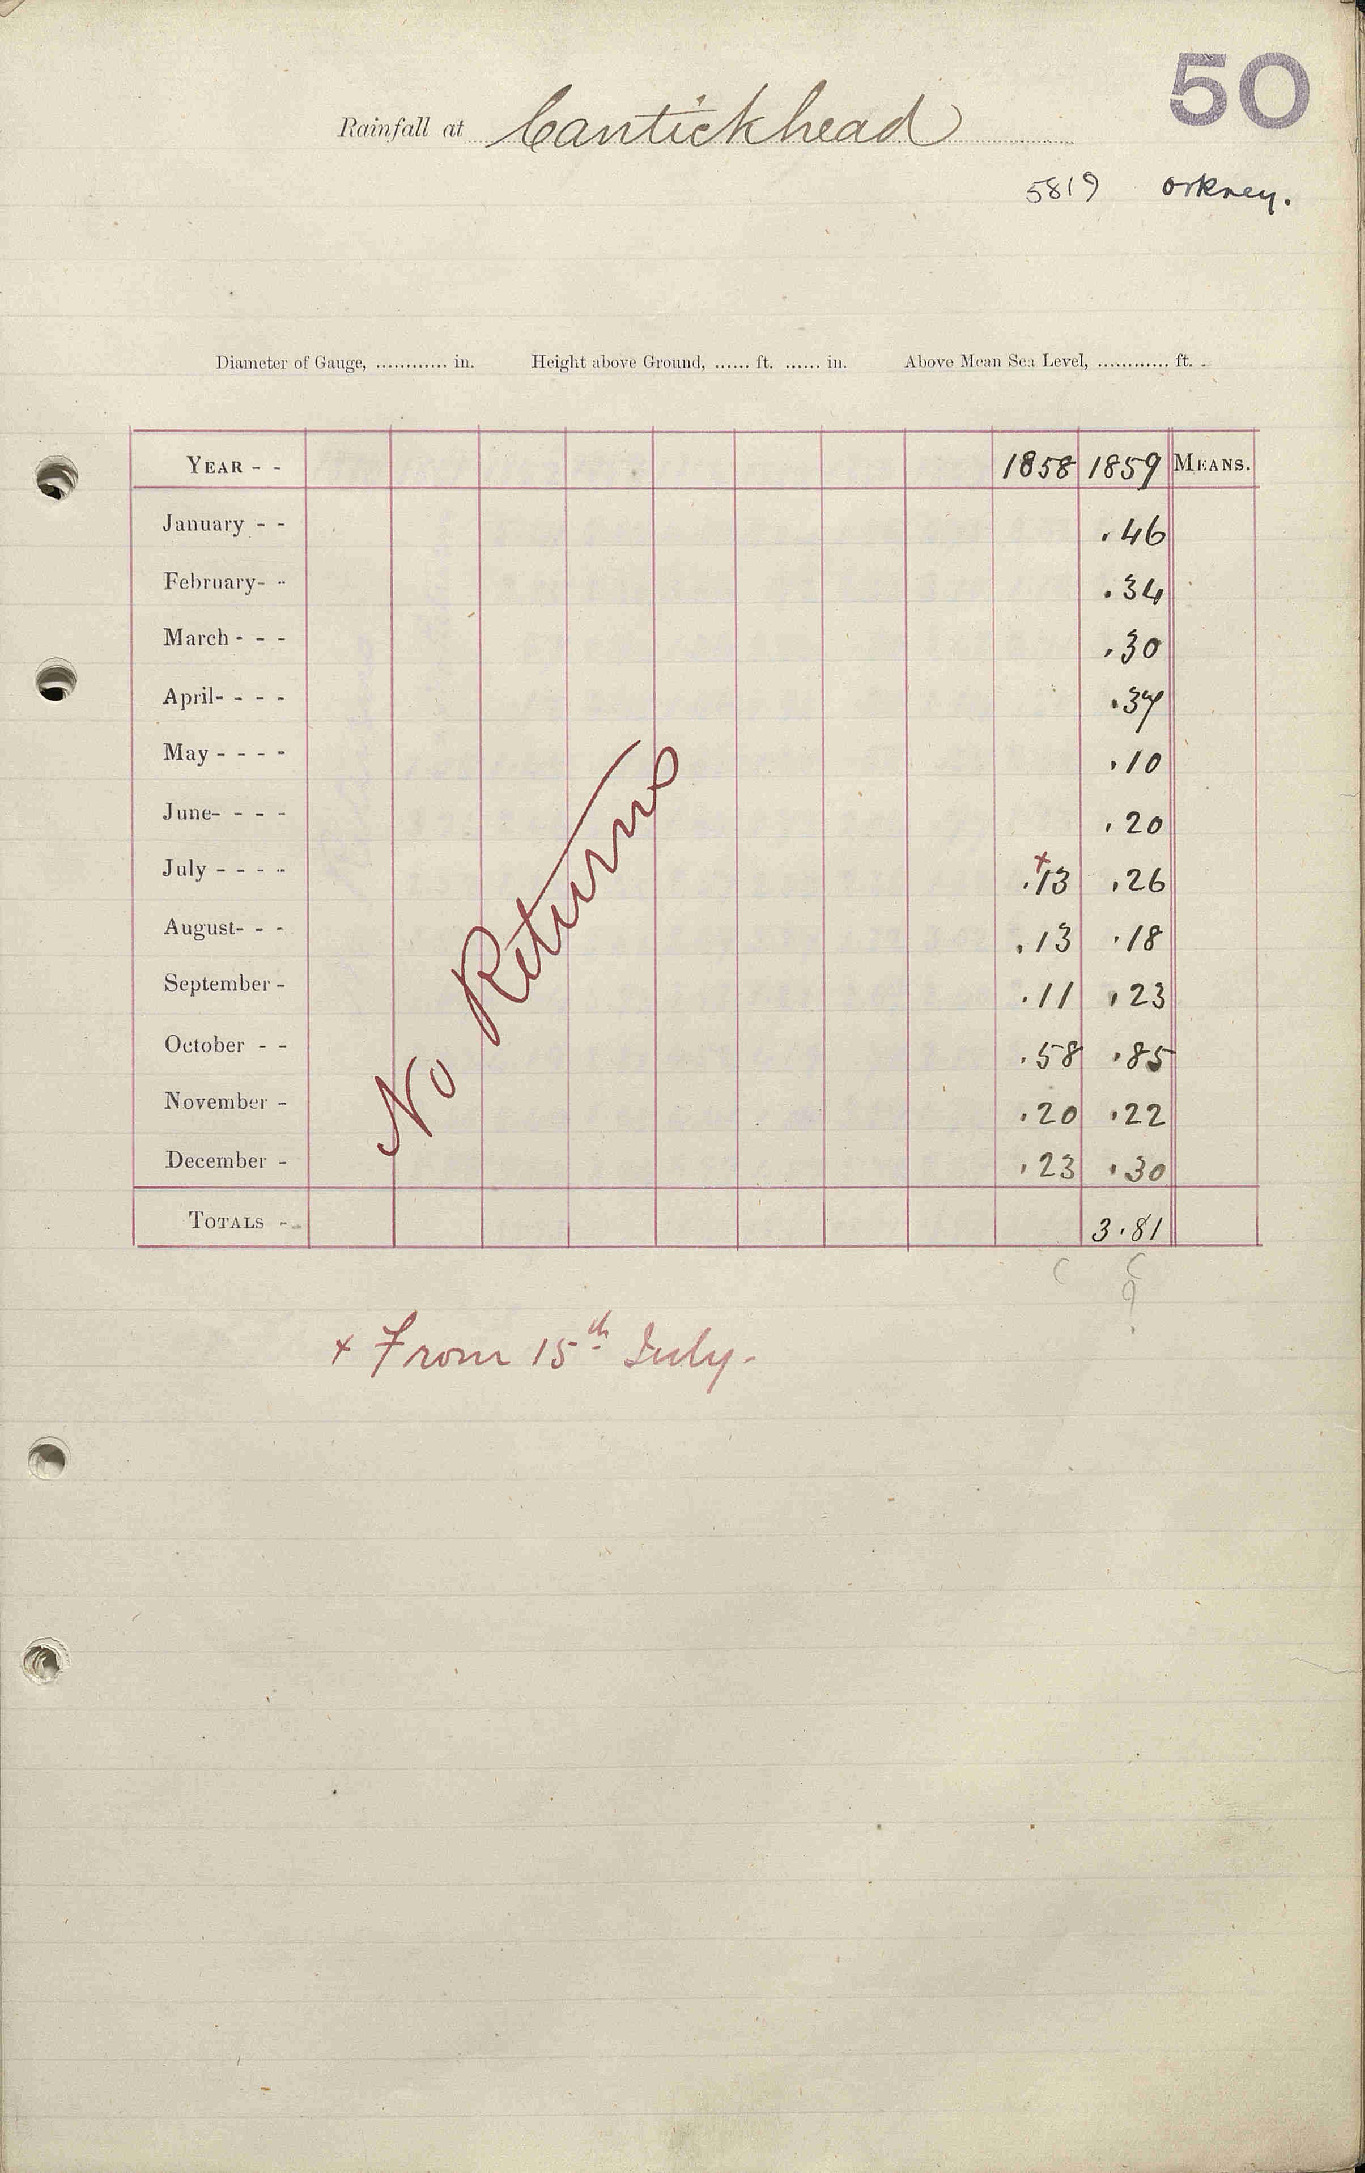 50
Rainfall at Cantickhead
5819 Orkney.
Diameter of Gauge, ............ in. Height above Ground, ...... ft. ...... in. Above Mean Sea Level, ............ ft.
YEAR - - 1858 1859 MEANS.
January - - .46
February- - .34
March - - - .30
April- - - - .37
May - - - - .10
June- - - - .20
July - - - - +.13 .26
August- - - .13 .18
September - .11 .23
October - - .58 .85
November - .20 .22
December - .23 .30
TOTALS - 3.81
No Returns
+ From 15th July.